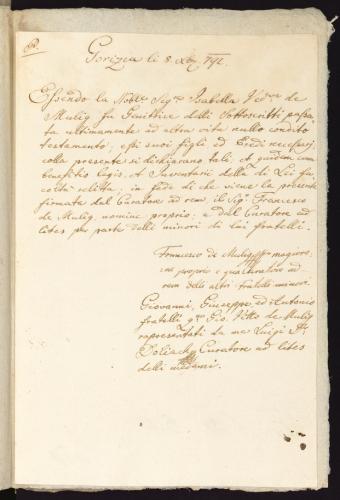 Gorizia li 8. Xbre 791.
Essendo la Noble Sigra Isabella Vedva de
Mulig fu Genitrice delli Sottoscritti passa-
ta ultimamente ad altra vita nullo condito
testamento, essi suoi figli ed Eredi necessarj
colla presente si dichiarano tali, et quidem cum
beneficio legis, et Inventarii della di Lei fa-
coltà relitta; in fede di che viene la presente
firmata dal Curatore ad rem il Sigr Francesco
de Mulig nomine proprio, e dal Curatore ad
lites per parte delli minori di lui fratelli.
Francesco de Mulig maggiore
proprio e qual curatore ad
rem delli altri fratelli minori.
Giovanni, Giuseppe ed Antonio
fratelli qm Gio. Vitto de Mulig
rapresentati da me Luigi
Curatore ad lites
delli medemi.